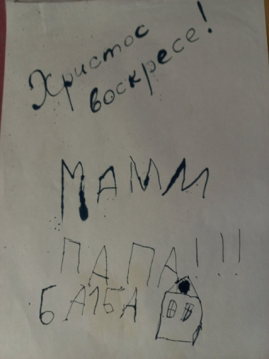 Христос
воскресе!
МАММ
ПАПА!!!
БА1БА